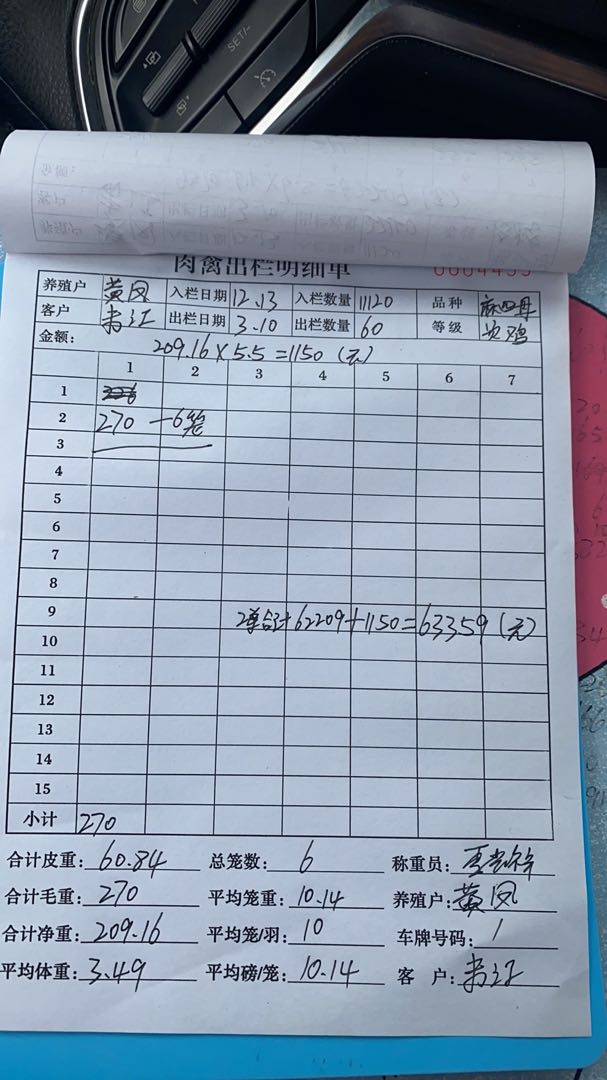 SET/-
肉禽出栏明细单
养殖户 黄凤 入栏日期 12.13 入栏数量 11120 品种 麻四母
客户 出栏日期 3.10 出栏数量 60 等级 次鸡
金额： 209.16×5.5=1150（元）
1 2 3 4 5 6 7
1
2 270 — 6笼
3
4
5
6
7
8
9 2单合计62209+1150=63359（元）
10
11
12
13
14
15
小计 270
合计皮重：60.84 总笼数：6 称重员：
合计毛重：270 平均笼重：10.14 养殖户：黄凤
合计净重：209.16 平均笼/羽：10 车牌号码：1
平均体重：3.49 平均磅/笼：10.14 客户：